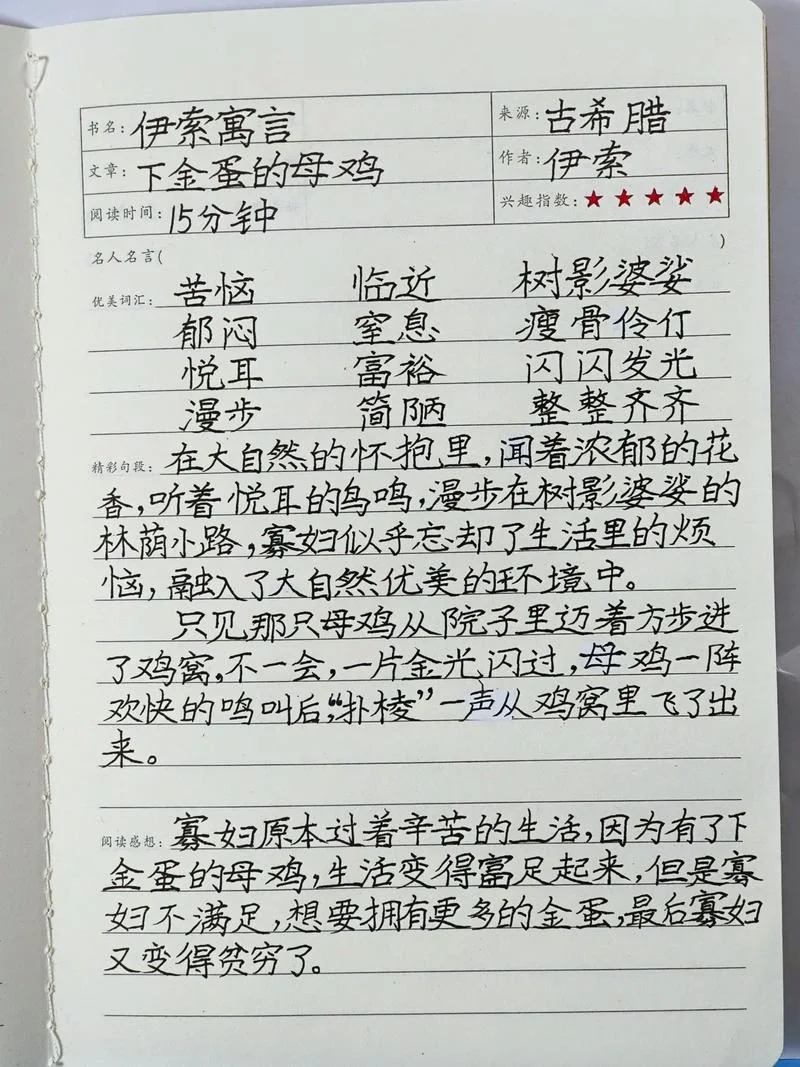 书名：伊索寓言 来源：古希腊
文章：下金蛋的母鸡 作者：伊索
阅读时间：15分钟 兴趣指数：★★★★★
名人名言( )
优美词汇：苦恼 临近 树影婆娑
郁闷 窒息 瘦骨伶仃
悦耳 富裕 闪闪发光
漫步 简陋 整整齐齐
精彩句段：在大自然的怀抱里，闻着浓郁的花
香，听着悦耳的鸟鸣，漫步在树影婆娑的
林荫小路，寡妇似乎忘却了生活里的烦
恼，融入了大自然优美的环境中。
只见那只母鸡从院子里迈着方步进
了鸡窝，不一会，一片金光闪过，母鸡一阵
欢快的鸣叫后，“扑棱”一声从鸡窝里飞了出
来。
阅读感想：寡妇原本过着辛苦的生活，因为有了下
金蛋的母鸡，生活变得富足起来，但是寡
妇不满足，想要拥有更多的金蛋，最后寡妇
又变得贫穷了。